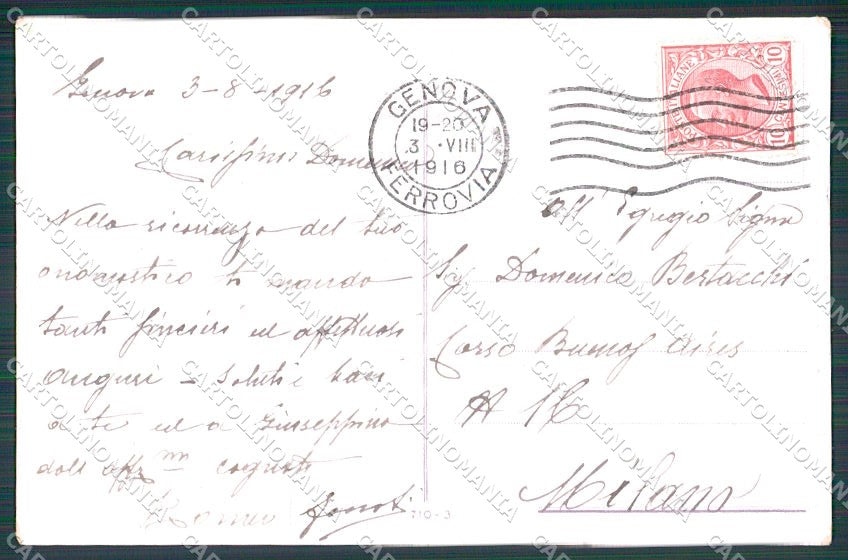 Genova 3-8-1916
Carissimo Domenico
Nella ricorrenza del tuo
onomastico ti mando
tanti sinceri ed affettuosi
auguri - Saluti e baci
a te ed a Giuseppino
dall' aff mo cognato
GENOVA
19-20
3 · VIII
1916
FERROVIA
10
10
All' Egregio Signor
Sg Domenico Bertacchi
Corso Buenos Aires
Milano
710-3
CARTOLINOMANIA